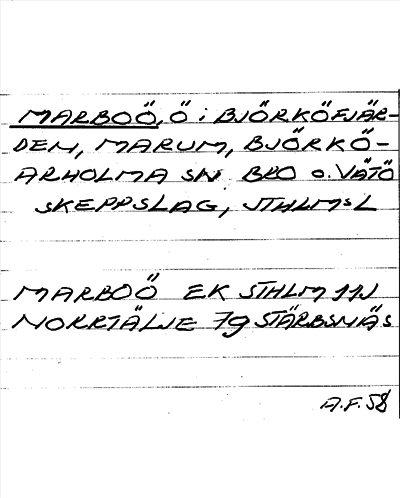 MARBOÖ, Ö i BJÖRKÖFJÄR-
DEN, MARUM, BJÖRKÖ-
ARHOLMA SN BRO o. VÄTÖ
SKEPPSLAG, STHLMSL
MARBOÖ EK STHLM 11J
NORRTÄLJE 79 STÄRBSNÄS
A.F. 58